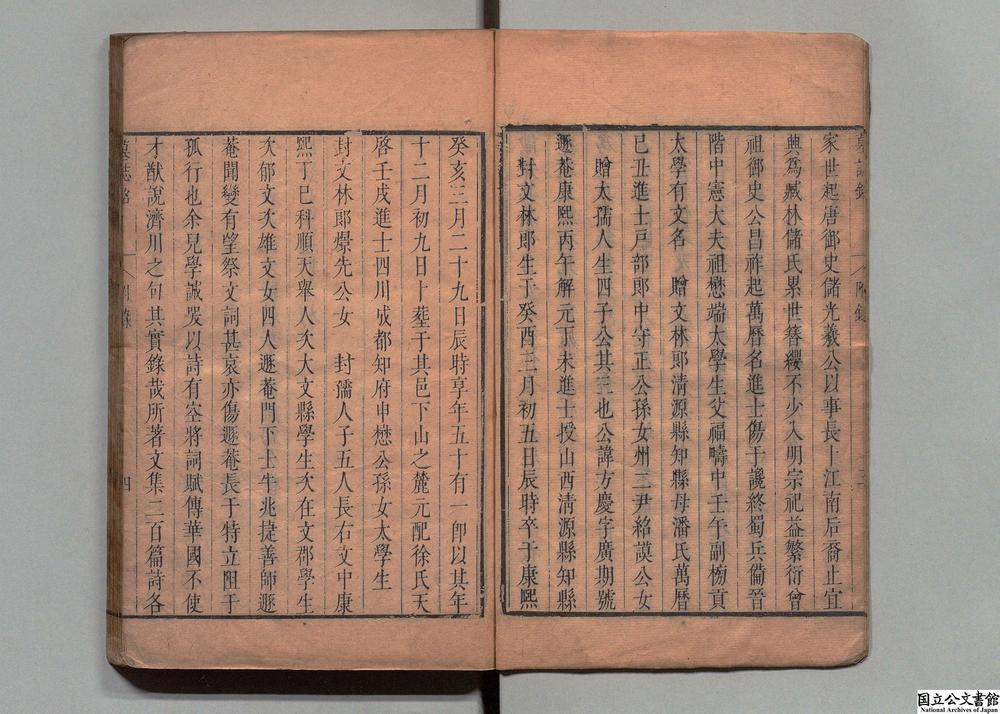 家世起唐御史儲光羲公以事長上江南后裔止宜
興為臧林儲氏累世簪纓不少入明宗祀益繁衍曾
祖御史公昌祚起萬曆名進士傷于讒終蜀兵備晉
階中憲大夫祖懋端太學生父福疇中壬午副榜貢
太學有文名 贈文林郎清源縣知縣母潘氏萬曆
己丑進士戶部郎中守正公孫女州二尹紹謨公女
贈太孺人生四子公其三也公諱方慶字廣期號
遯菴康熙丙午解元丁未進士授山西清源縣知縣
封文林郎生于癸酉三月初五日辰時卒于康熙
癸亥三月二十九日辰時享年五十有一卽以其年
十二月初九日十塟于其邑下山之麓元配徐氏天
啓壬戌進士四川成都知府申懋公孫女太學生
封文林郎景先公女 封孺人子五人長右文中康
熙丁巳科順天舉人次大文縣學生次在文郡學生
次郁文次雄文女四人遯菴門下士牛兆捷善師遯
菴聞變有望祭文詞甚哀亦傷遯菴長于特立阻于
孤行也余兄學誠哭以詩有空將詞賦傳華國不使
才猷說濟川之句其實錄哉所著文集二百篇詩各
墓誌銘
附錄
四
國立公文書館
National Archives of Japan